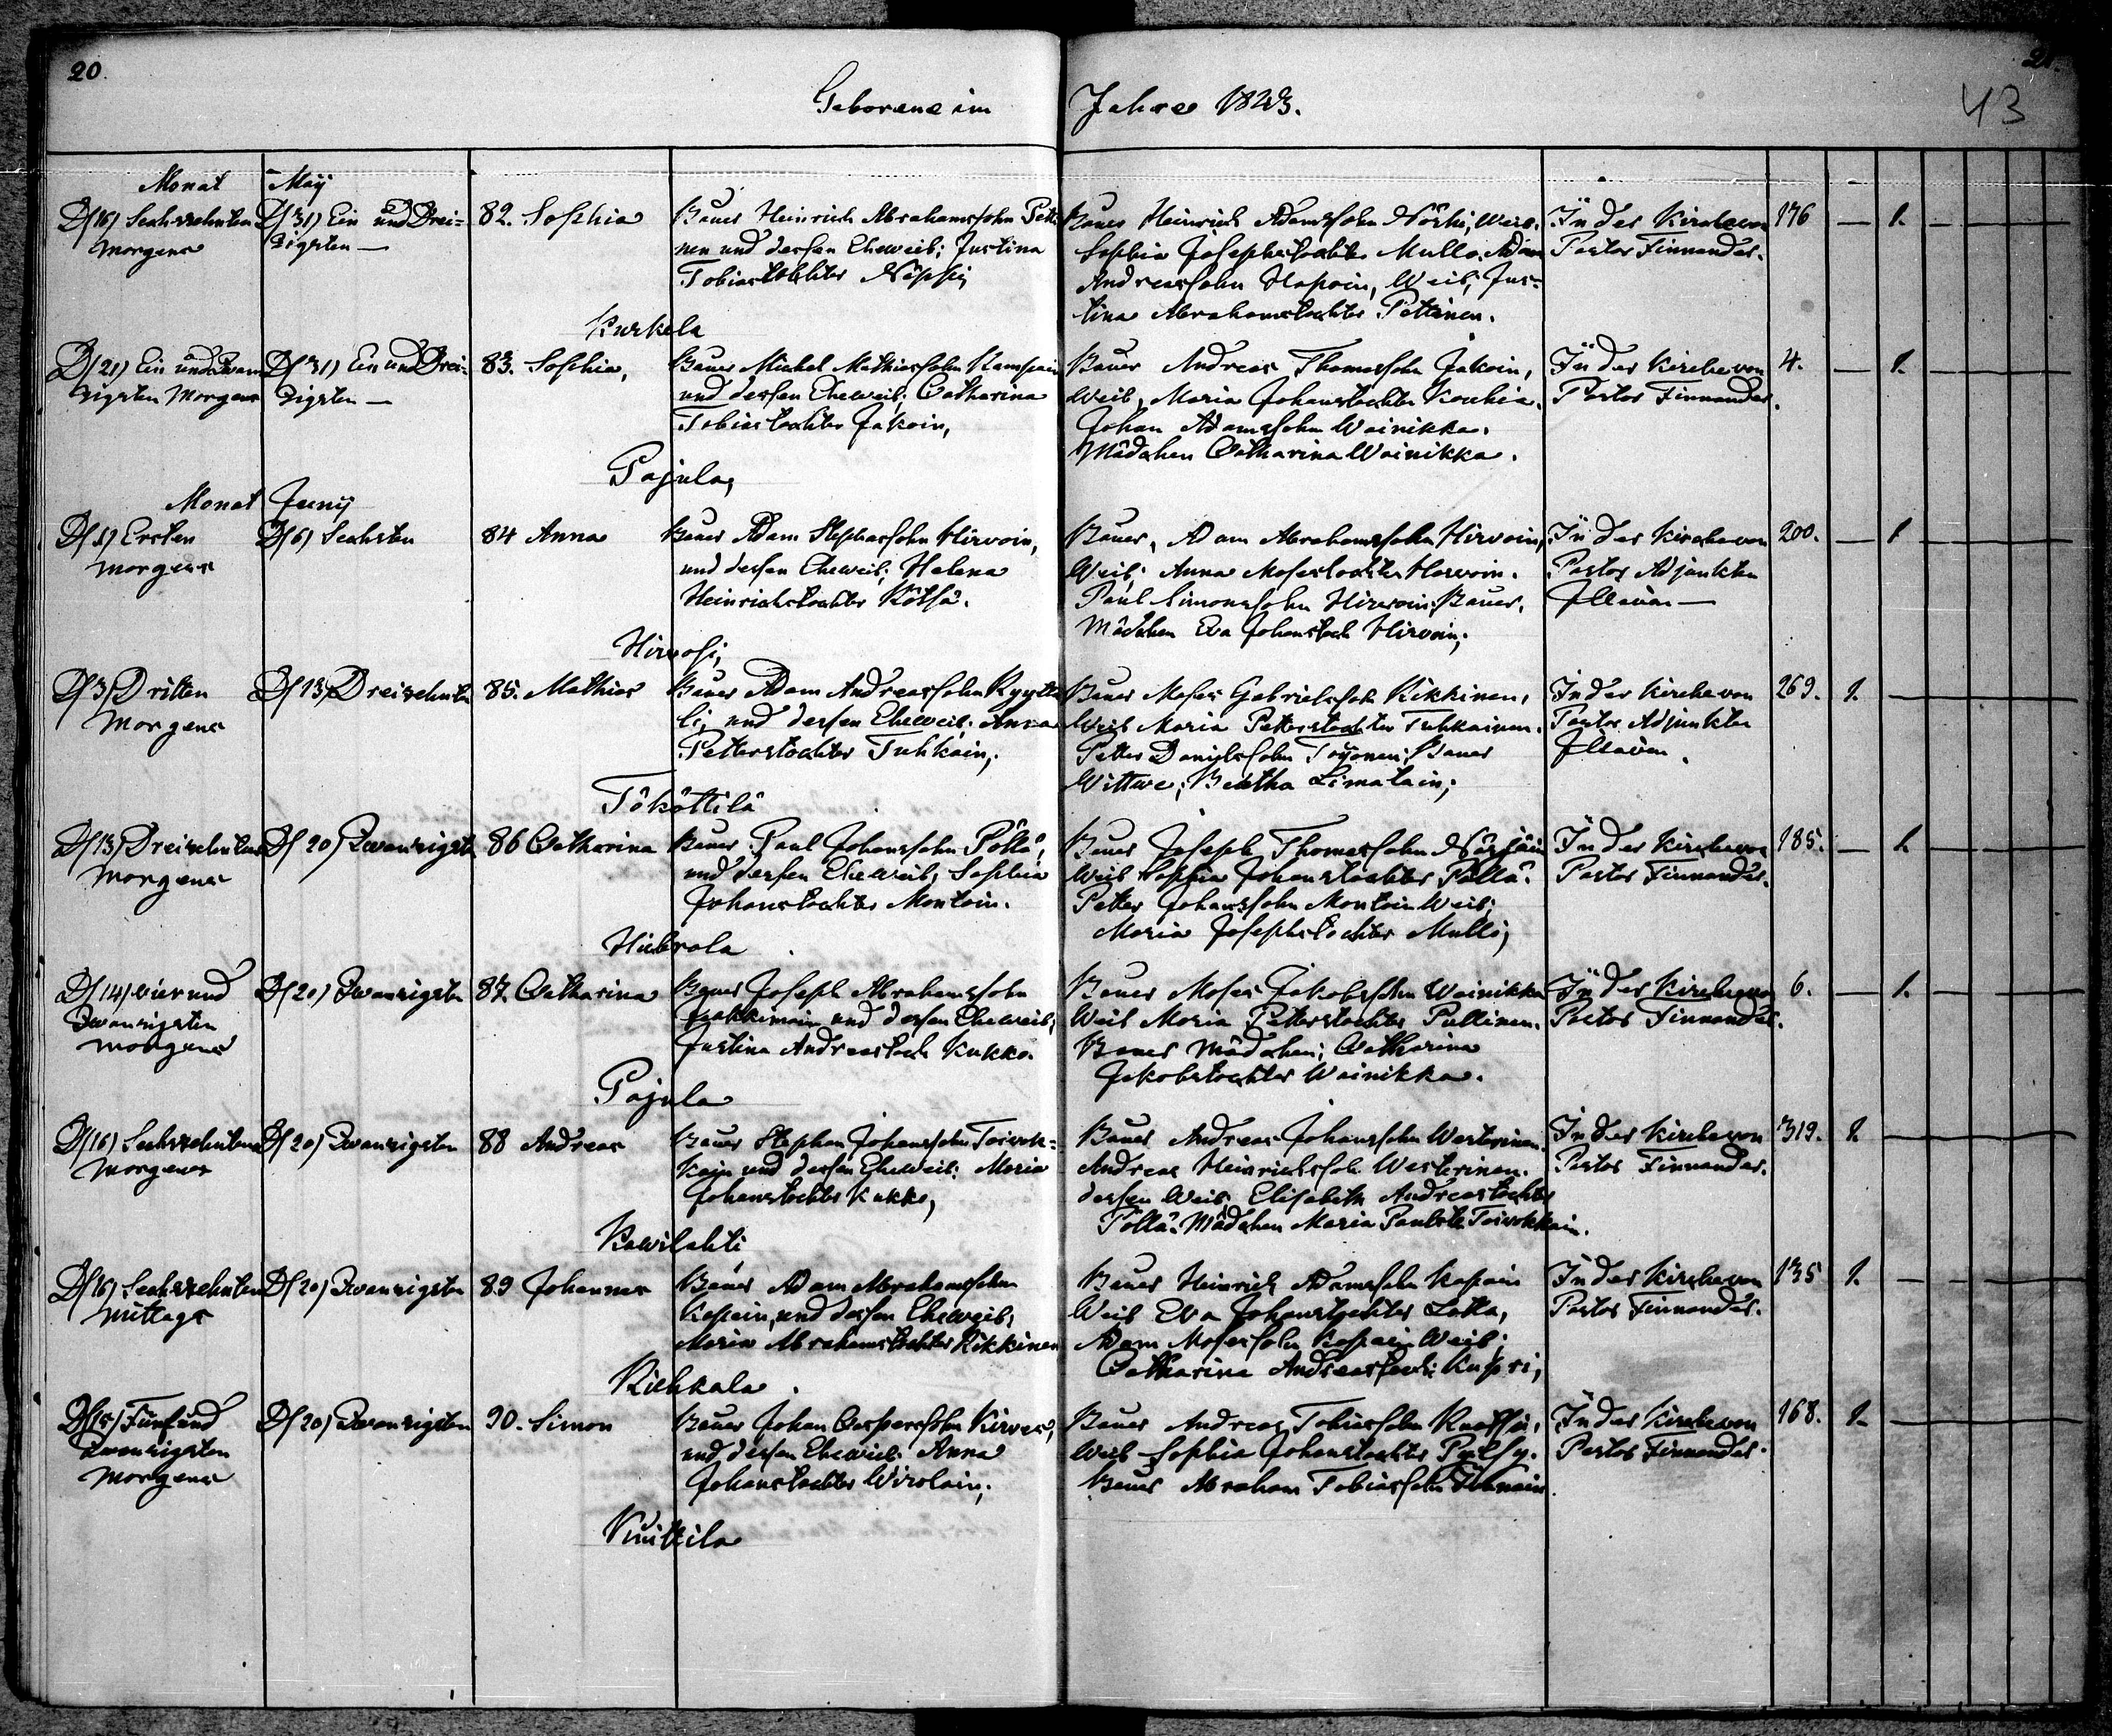 20.
21.
43
Geborene im Jahre 1823.
Monat May
D/16) Sechszehnten D/31) Ein und Drei- 82. Sophia Bauer Heinrich Abrahamssohn Petti Bauer Heinrich Adamssohn Weib. In der Kirche von 176 — 1.
Morgens zigsten — nen und dessen Eheweib; Justina Sophia Josephstochter Mullo. Adam Pastor Finnander.
Tobiastochter Näppi; Andreassohn Hapoin, Weib; Jus-
tina Abrahamstochter Pettinen.
Kurkela
D/21) Ein und Zwan D/31) Ein und Drei- 83. Sophia, Bauer Michel Mathiassohn und dessen Eheweib; Catharina Bauer Andreas Thomassohn Jakoin, In der Kirche von 4. — 1.
zigsten Morgens zigsten — Tobiastochter Jakoin, Weib, Maria Johanstochter Pastor Finnander.
Johan Adamssohn Wainikka.
Mädchen Catharina Wainikka.
Pajula,
Monat Juny
D/1) Ersten D/6) Sechsten 84 Anna Bauer Adam Stephassohn Hirvoin, Bauer, Adam Abrahamssohn Hirvoin, In der Kirche von 200. — 1
Morgens und dessen Eheweib; Helena Weib; Anna Mosestochter Pastor Adjunkten
Heinrichstochter Paul Simonssohn Hirvoin; Bauer. —
Mädchen Eva Johanstoch Hirvoin;
Hirvosi;
D/3) Dritten D/13) Dreizehnten 85. Mathias Bauer Adam Andreassohn Kyytti Bauer Moses Gabrielssohn Kikkinen, In der Kirche von 269. 1. —
Morgens li; und dessen Eheweib; Anna Weib Maria Petterstochter Tuhkainen. Pastor Adjunkten
Petterstochter Tuhkain, Petter Bauer
Wittwe; Beatha Limatain;
Tököttilä
D/13) Dreizehnten D/20) Zwanzigsten 86 Catharina Bauer Paul Johanssohn Pöllä, Bauer Joseph Thomassohn In der Kirche von 185. — 1.
Morgens und dessen Eheweib, Sophia Weib Sophia Johanstochter Pöllä. Pastor Finnander.
Johanstochter Montoin. Petter Johanssohn Montoin Weib;
Maria Josephstochter Mullo;
D/14) vier und D/20) Zwanzigsten 87. Catharina Bauer Joseph Abrahamssohn Bauer Moses Jakobssohn Wainikka In der Kirche von 6. — 1.
Zwanzigsten und dessen Eheweib, Weib Maria Petterstochter Pullinen. Pastor Finnander.
Morgens Justina Andreastoch Kukko. Bauer Mädchen; Catharina
Jakobstochter Wainikka.
Pajula
D/16) Sechszehnten D/20) Zwanzigsten 88 Andreas Bauer Stephan Johanssohn Toivok- Bauer Andreas Johanssohn Westerinen. In der Kirche von 319. 1. —
Morgens kain und dessen Eheweib: Maria Andreas Heinrichssoh Westerinen. Pastor Finnander.
Johanstochter Kukko, dessen Weib; Elisabeth Andreastochter
Pöllä. Mädchen Maria Toivokkain.
Kawilahti
D/16) Sechszehnten D/20) Zwanzigsten 89 Johannes Bauer Adam Abrahamssohn Bauer Heinrich Adamssohn Kapain In der Kirche von 135 1. —
Mittags Kapain, und dessen Eheweib, Weib Eva Johanstochter Lotta, Pastor Finnander.
Maria Abrahamstochter Kikkinen Adam Mosessohn Kapain Weib;
Catharina Andreastoch: Kupri;
Riehkala
D/15) Fünf und D/20) Zwanzigsten 90. Simon Bauer Johan Casperssohn Kirves, Bauer Andreas Tobiassohn In der Kirche von 168. 1. —
Zwanzigsten und dessen Eheweib Anna Weib Sophia Johanstochter Pastor Finnander.
Morgens Johanstochter Wirolain; Bauer Abraham Tobiassohn